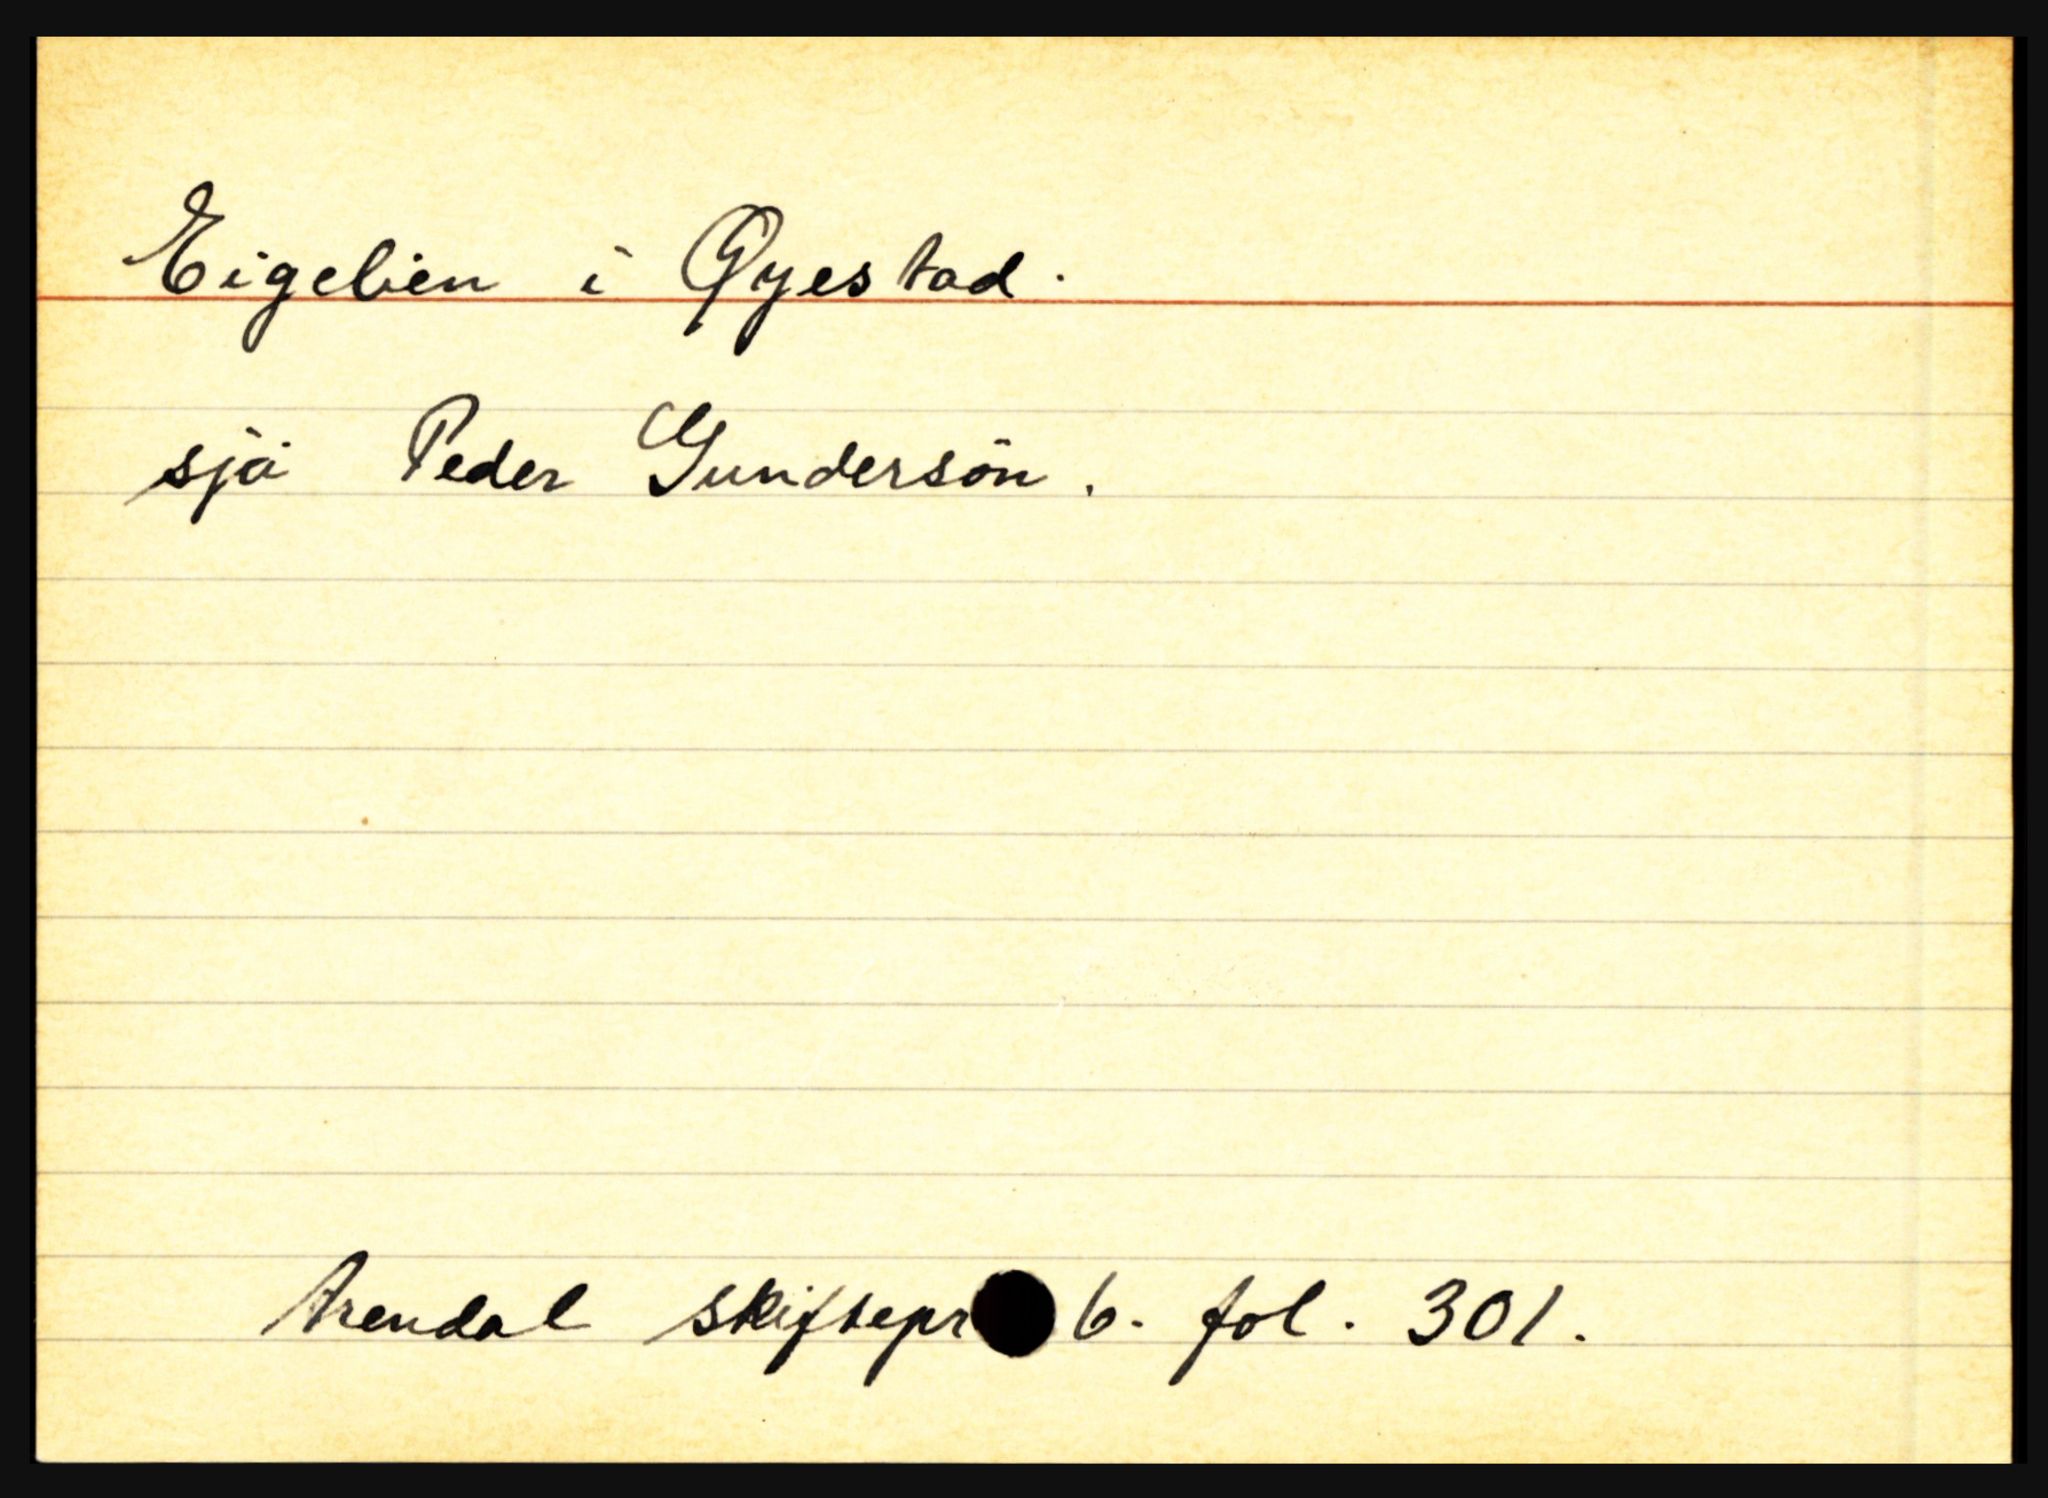 Eigelien i Øyestad.
sjå Peder Gundersön.
Arendal skiftepr 6. fol. 301.